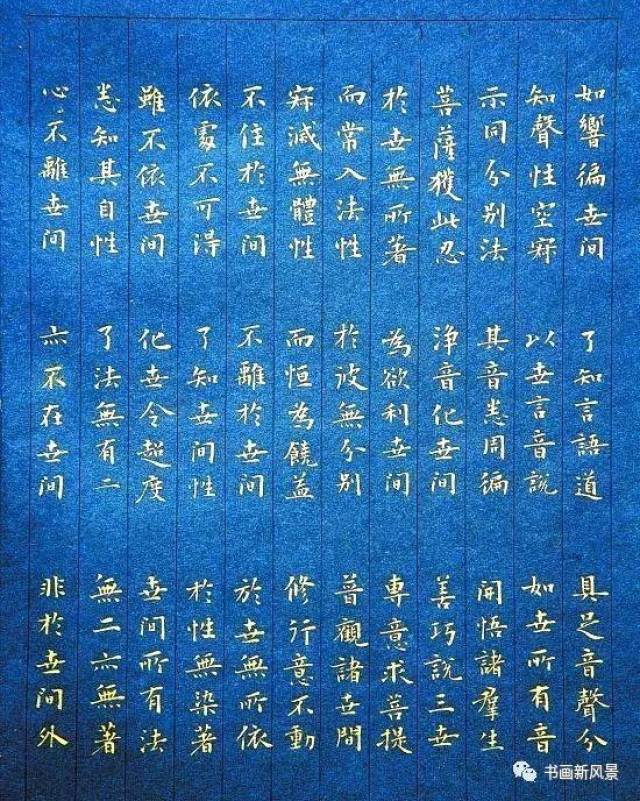 如響徧世間 了知言語道 具足音聲分
知聲性空寂 以世言音說 如世所有音
示同分別法 其音悉周徧 開悟諸羣生
菩薩獲此忍 淨音化世間 善巧說三世
於世無所著 為欲利世間 專意求菩提
而常入法性 於彼無分別 普觀諸世間
寂滅無體性 而恒為饒益 修行意不動
不住於世間 不離於世間 於世無所依
依處不可得 了知世間性 於性無染著
雖不依世間 化世令超度 世間所有法
悉知其自性 了法無有二 無二亦無著
心不離世間 亦不在世間 非於世間外
书画新风景